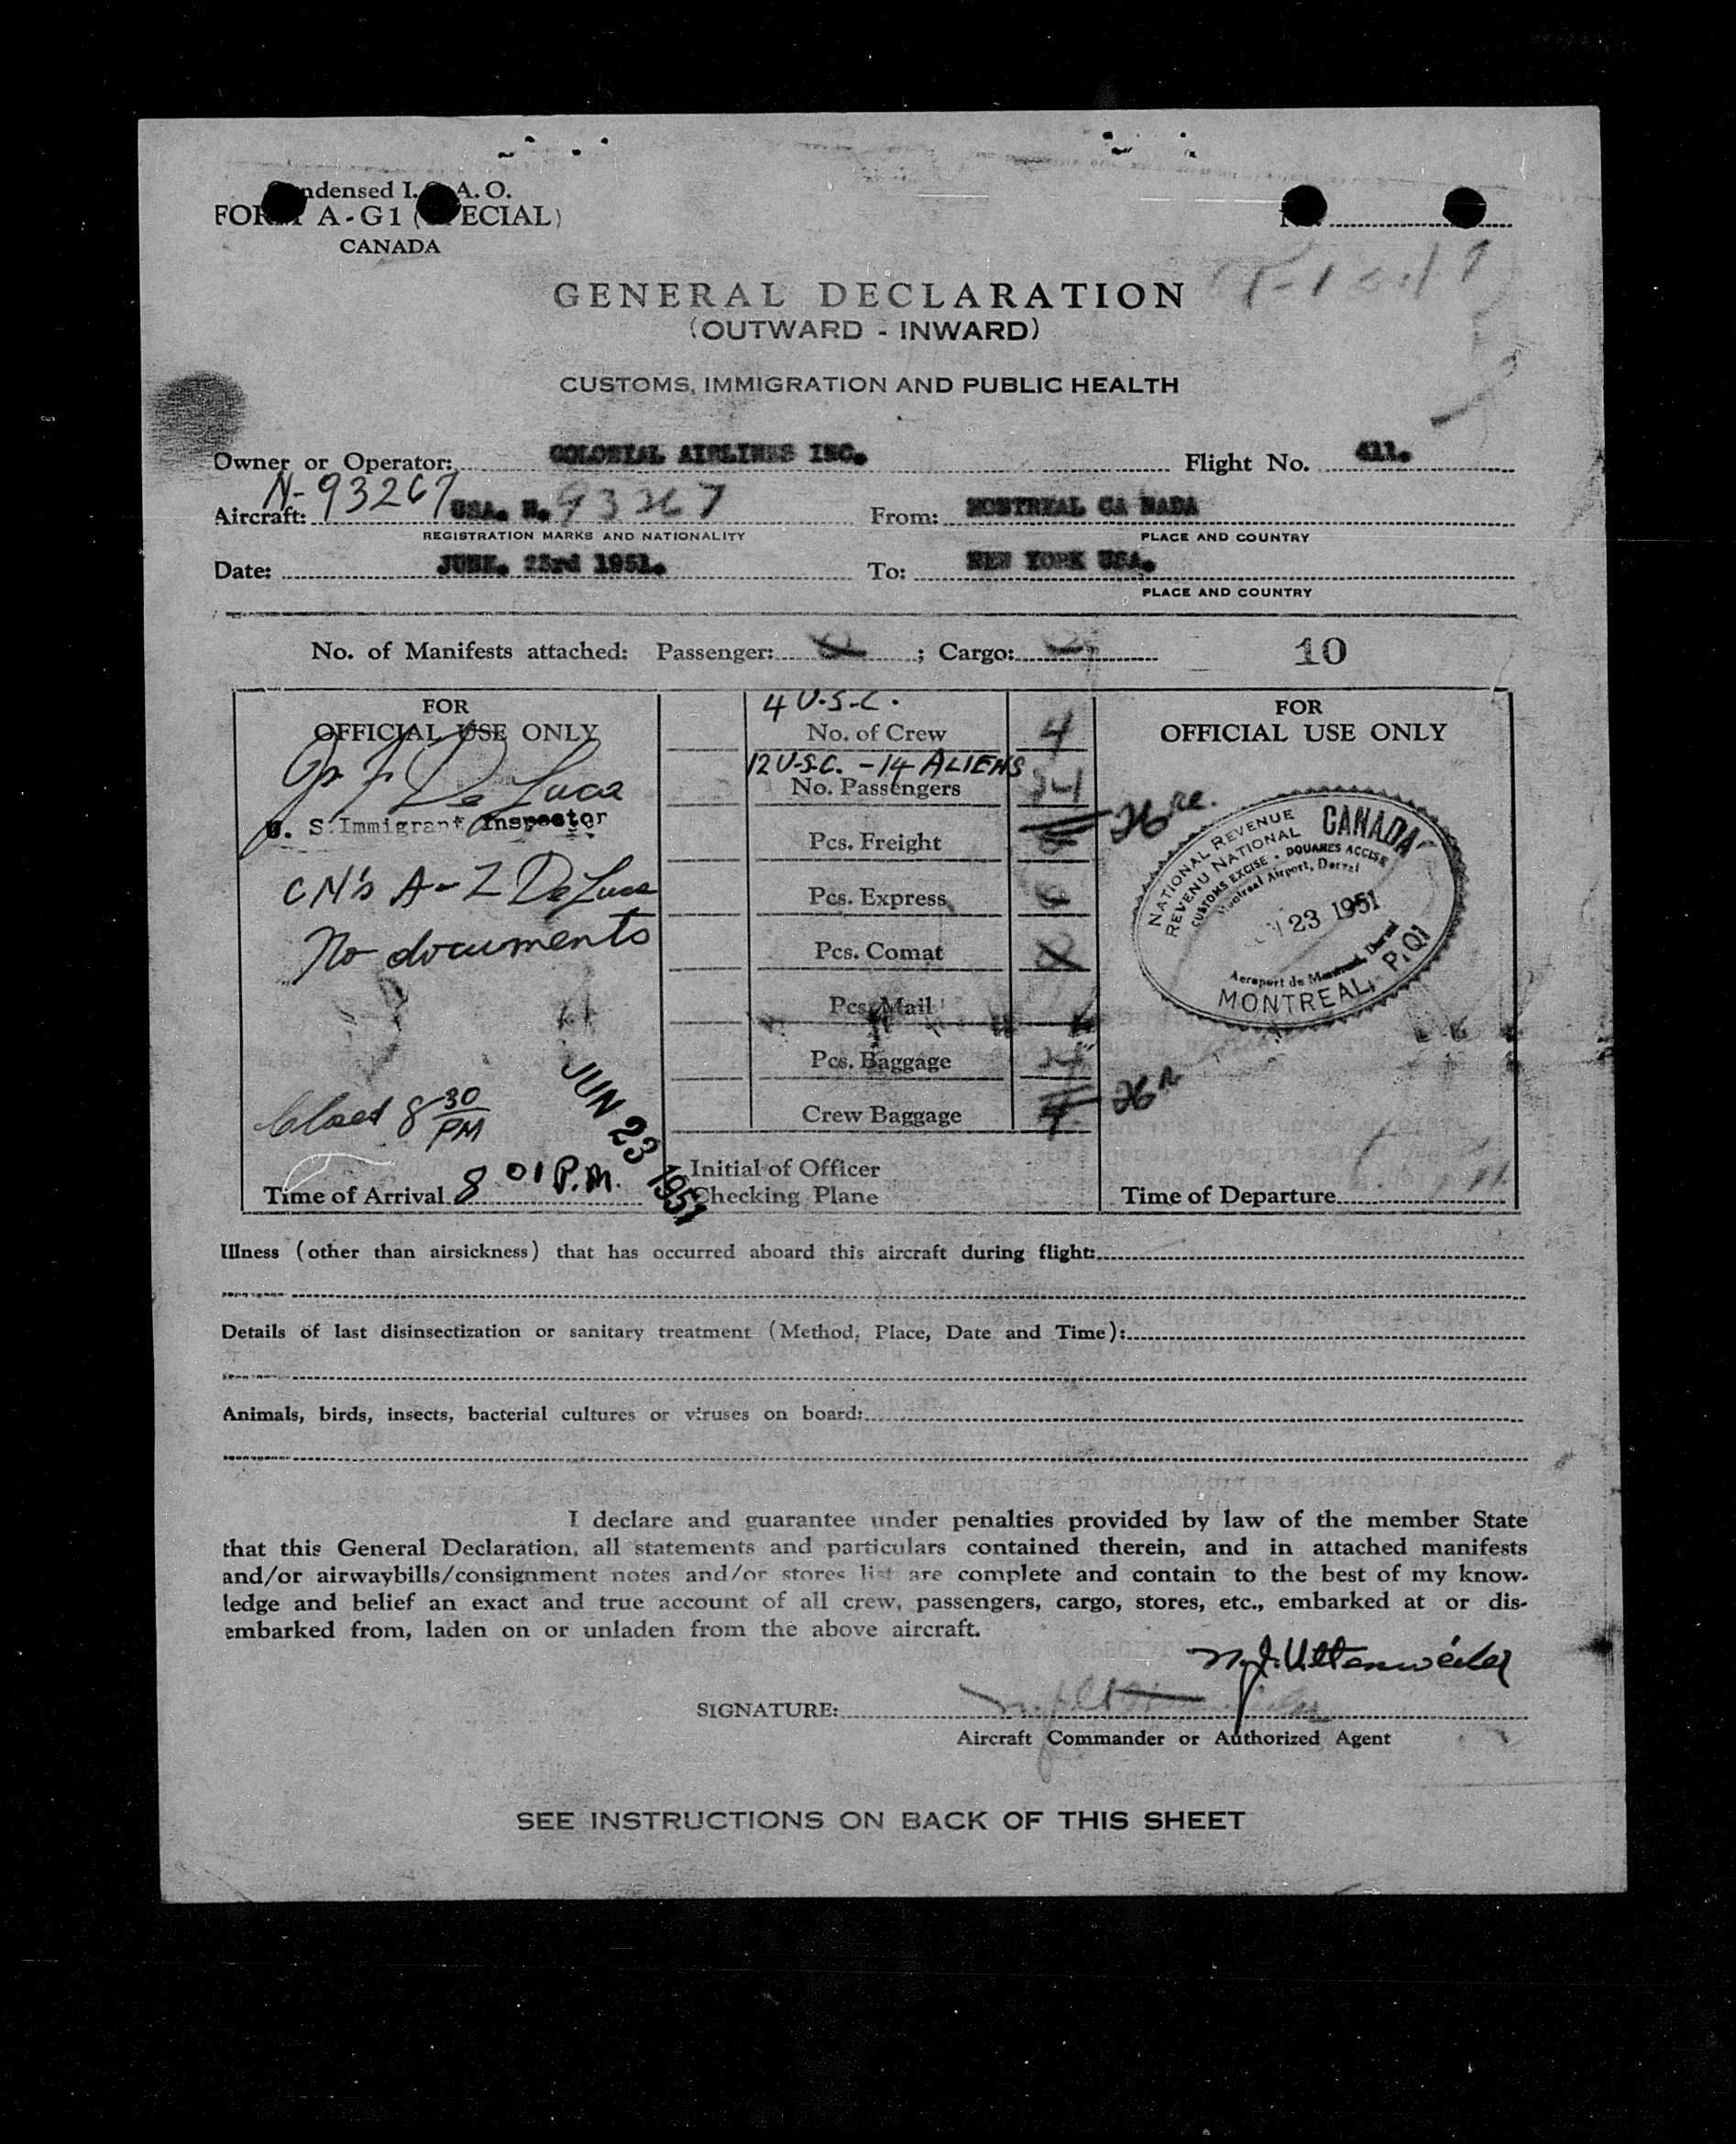 Condensed I.C.A.O.
FORM A-G1 (SPECIAL)
CANADA
No.
GENERAL DECLARATION
(OUTWARD - INWARD)
CUSTOMS, IMMIGRATION AND PUBLIC HEALTH
Owner or Operator: COLONIAL AIRLINES INC. Flight No. 411.
N-93267
Aircraft: USA. N. 93267 From: MONTREAL CA NADA
REGISTRATION MARKS AND NATIONALITY PLACE AND COUNTRY
Date: JUNE. 23rd 1951. To: NEW YORK USA.
PLACE AND COUNTRY
No. of Manifests attached: Passenger: ; Cargo: 10
FOR
OFFICIAL USE ONLY
De Luca
U. S. Immigrant Inspector
CN's A-Z DeLuca
No documents
8 30 PM
JUN 23 1951
Time of Arrival 8 01 P.M.
4 U.S.C.
No. of Crew 4
12 U.S.C. - 14 ALIENS
No. Passengers 26
Pcs. Freight
Pcs. Express
Pcs. Comat
Pcs. Mail
Pcs. Baggage
Crew Baggage 4
Initial of Officer
Checking Plane
FOR
OFFICIAL USE ONLY
NATIONAL REVENUE CANADA
REVENU NATIONAL
CUSTOMS EXCISE · DOUANES ACCISE
Montreal Airport, Dorval
23 1951
Aeroport de Montreal, Dorval
MONTREAL, P.Q.
Time of Departure
Illness (other than airsickness) that has occurred aboard this aircraft during flight:
Details of last disinsectization or sanitary treatment (Method, Place, Date and Time):
Animals, birds, insects, bacterial cultures or viruses on board:
I declare and guarantee under penalties provided by law of the member State
that this General Declaration, all statements and particulars contained therein, and in attached manifests
and/or airwaybills/consignment notes and/or stores list are complete and contain to the best of my know-
ledge and belief an exact and true account of all crew, passengers, cargo, stores, etc., embarked at or dis-
embarked from, laden on or unladen from the above aircraft.
SIGNATURE:
Aircraft Commander or Authorized Agent
SEE INSTRUCTIONS ON BACK OF THIS SHEET